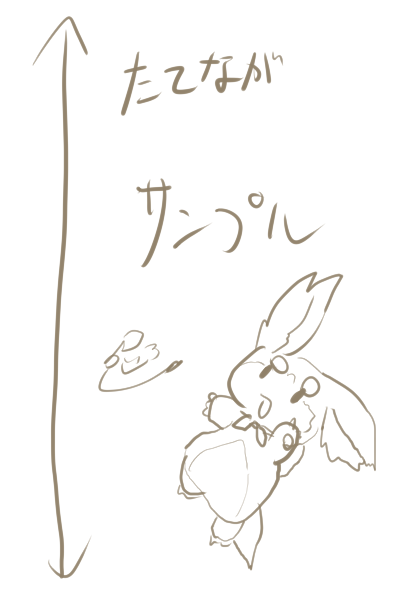 たてなが
サンプル